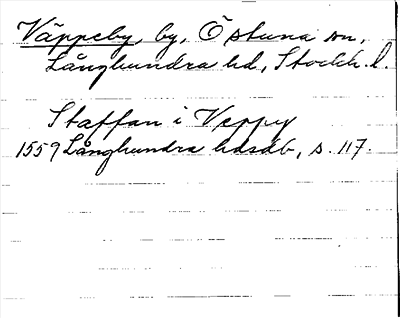 Väppeby, by, Östuna sn,
Långhundra hd, Stockh. l.
Staffan i Veppy
1559 Långhundra hdsdb, s. 117.